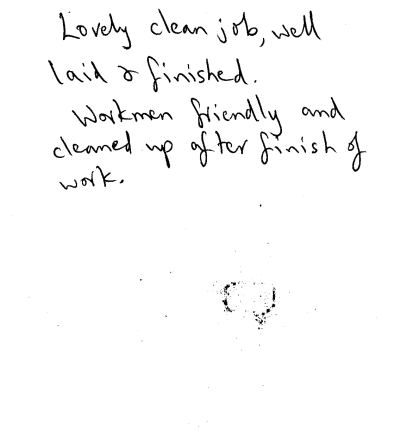 Lovely clean job, well
laid & finished.
Workmen friendly and
cleaned up after finish of
work.